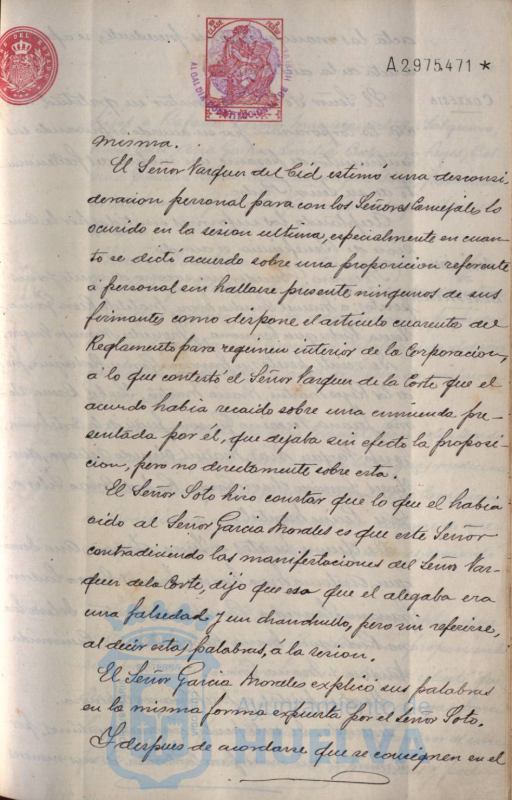 A2.975.471 *
misma.
El Señor Vazquez del Cid estimó una desconsi-
deracion personal para con los Señores Concejales lo
ocurido en la sesion ultima, especialmente en cuan-
to se dictó acuerdo sobre una proposicion referente
á personal sin hallarse presente ningunos de sus
firmantes como dispone el articulo cuarenta del
Reglamento para regimen interior de la Corporacion,
á lo que contestó el Señor Vazquez de la Corte que el
acuerdo habia recaido sobre una enmienda pre-
sentada por él, que dejaba sin efecto la proposi-
cion, pero no directamente sobre esta.
El Señor Soto hizo constar que lo que el habia
oido al Señor Garcia Morales es que este Señor
contradiciendo las manifestaciones del Señor Vaz-
quez de la Corte, dijo que esa que el alegaba era
una falsedad y un chanchullo, pero sin referirse,
al decir estas palabras, á la sesion.
El Señor Garcia Morales explicó sus palabras
en la misma forma expuesta por el señor Soto.
Y despues de acordarse que se consignen en el
Ayuntamiento de
HUELVA